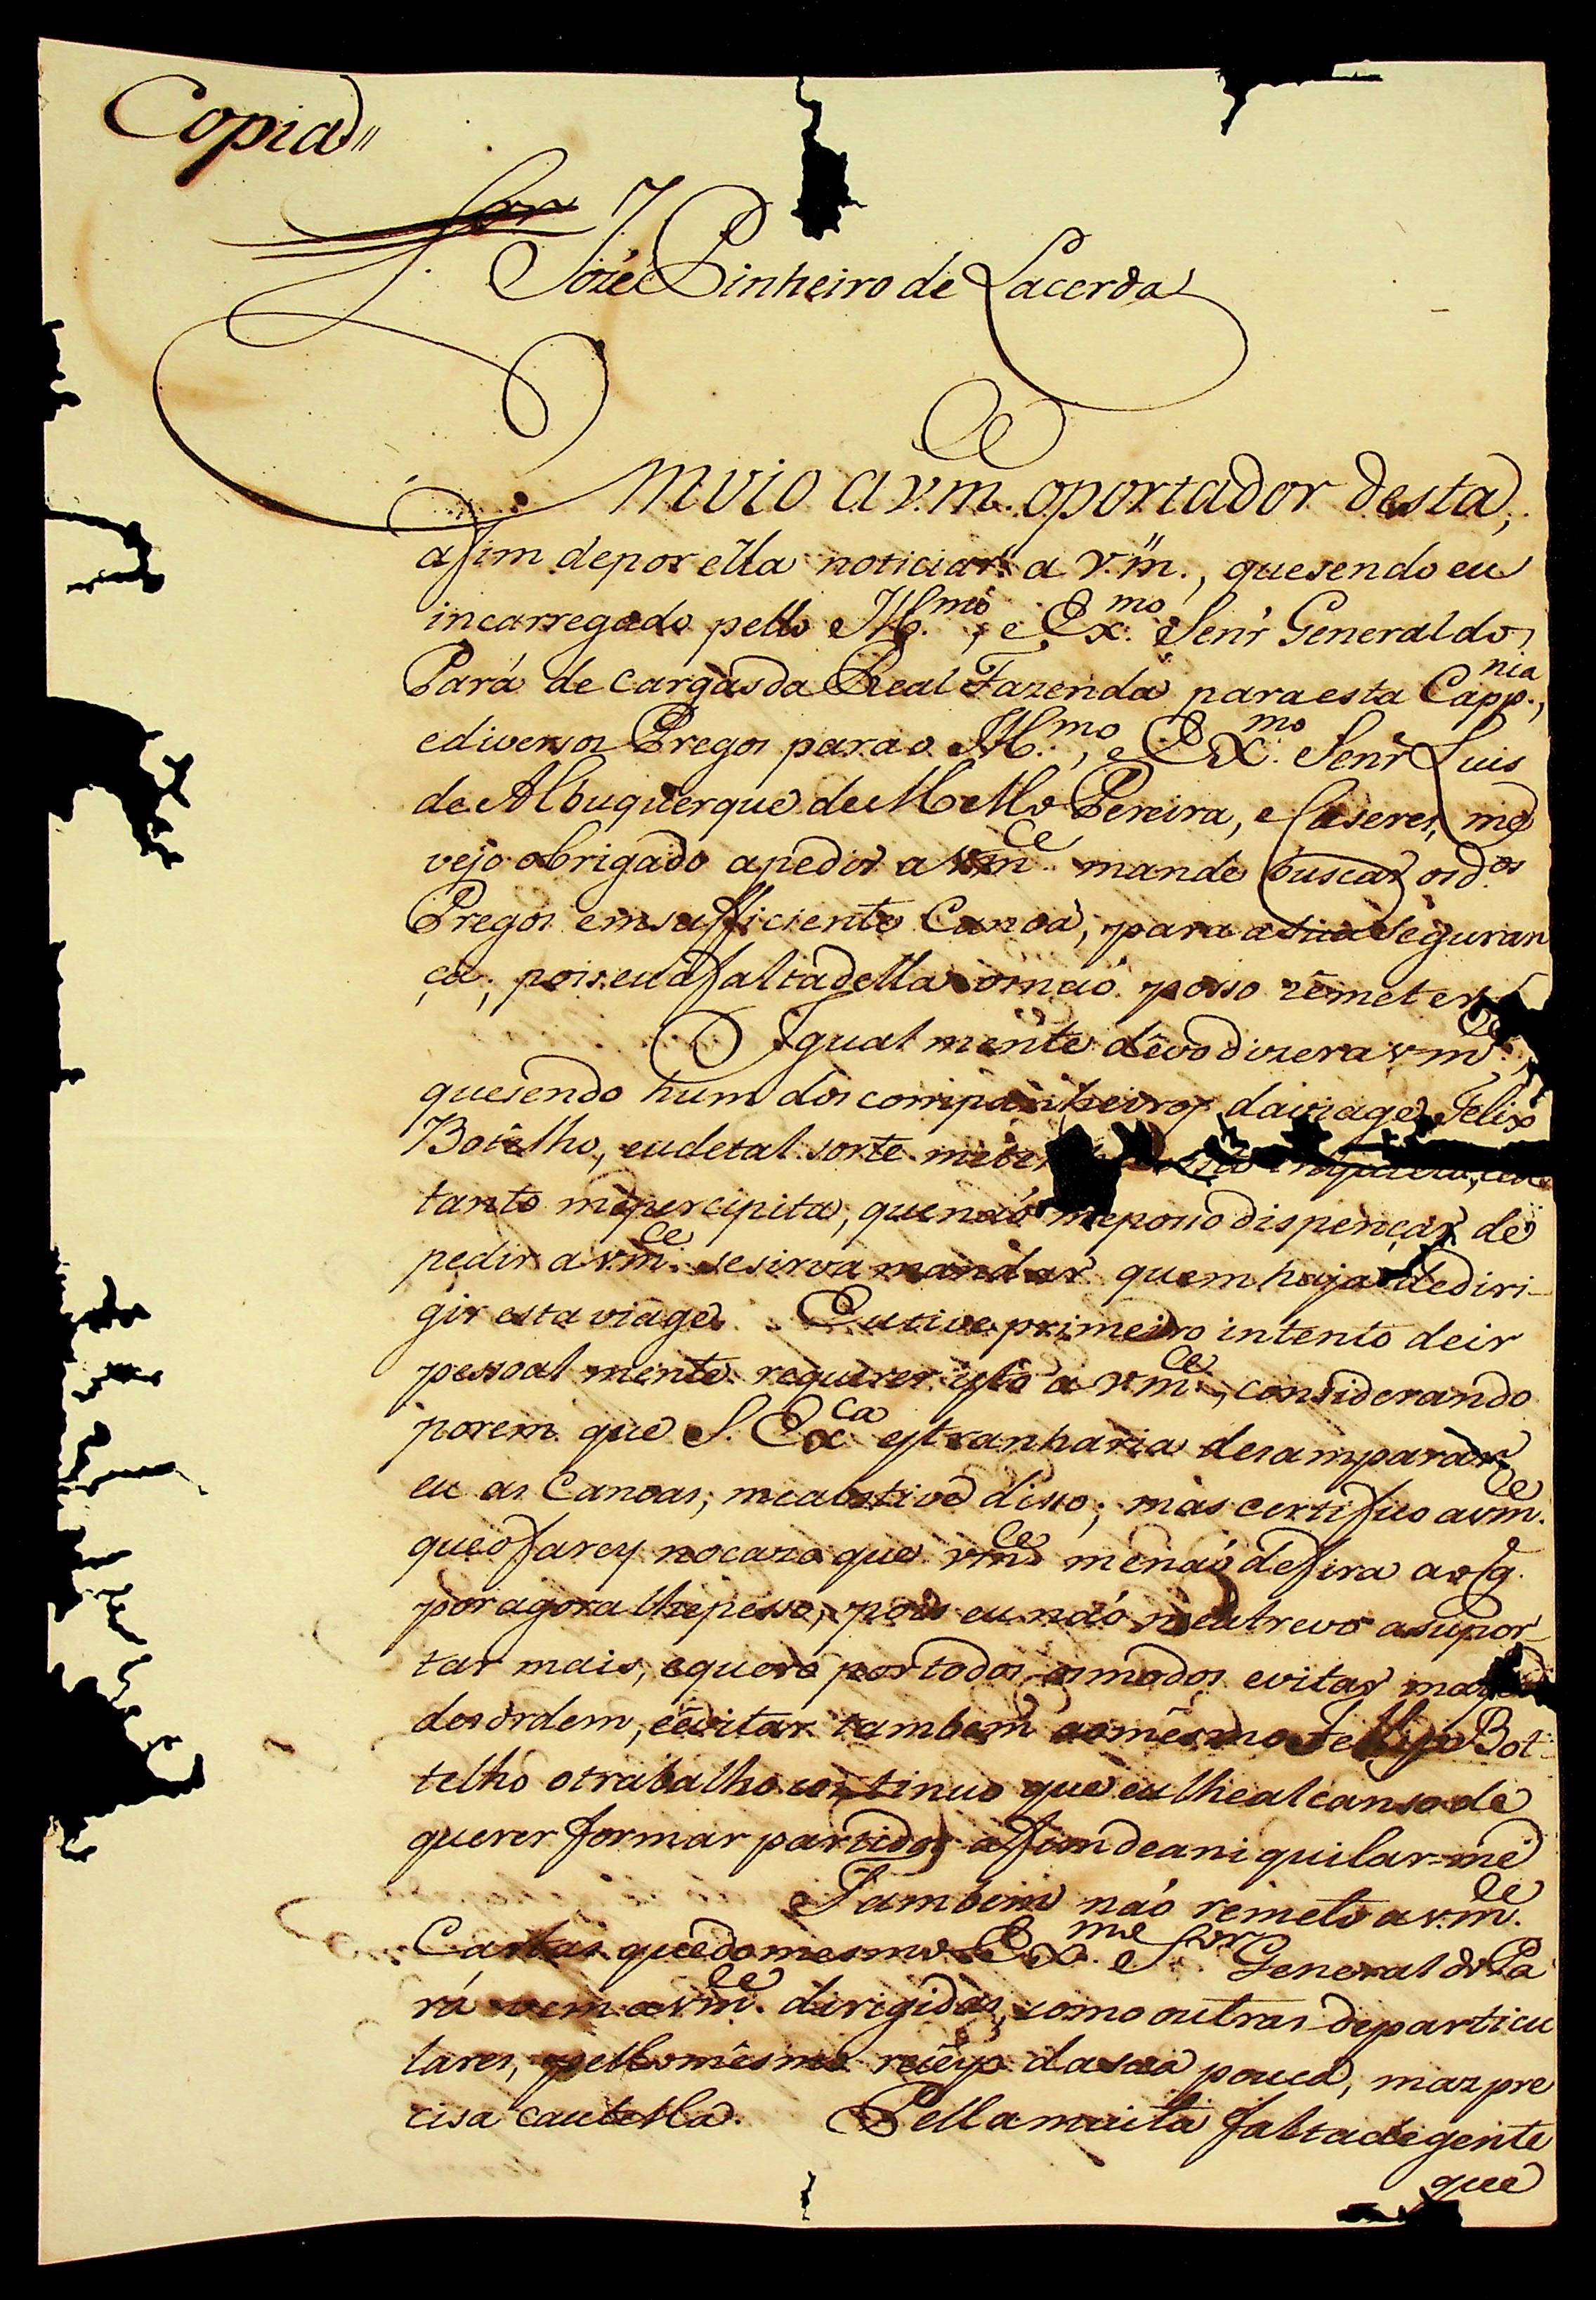 Copia //
Sor
Jozé Pinheiro de Lacerda
Emvio a v.m. oportador desta,
afim depor ella noticiar a v.m., quesendo eu
incarregado pello Ill.mo, e Ex.mo Senr General do
Pará de cargas da Real Fazenda para esta Capp.nia,
ediversos Pregos parao Ill.mo, e Ex.mo Senr Luis
de Albuquerque de Mello Pereira, e Caseres, me
vejo obrigado apedir a vm.ce mande buscar os d.os
Pregos em sufficiente Canoa, para a sua seguran
ça; pois eu áfalta della o naó posso remeter
Igual mente devo dizer a vm.ce,
quesendo hum dos companheiros da viage Felix
Botelho, eu de tal sorte me
tanto mepercipita, que naó meposso dispençar de
pedir a vm.ce sesirva mandar quem haja de diri-
gir esta viage. Eu tive primeiro intento de ir
pessoal mente requerer isto a vm.ce, considerando
porem que S. Ex.ca estranharia desamparar
eu as Canoas, meabstive disso; mas certifico avm.ce
que o farey nocazo que vm.ce me naó defira ao q.
por agora lhe pesso, pois eu naó me atrevo a supor-
tar mais, equero por todos os modos evitar
desordem, e evitar tambem ao mesmo Fellix Bot-
telho o trabalho continuo que eu lhe alcanso de
querer formar partidos afim de ani quilar-me
Tambem naó remeto avm.ce
Cartas que do mesmo Ex.mo Sor General do Pa
rá vem a vm.ce dirigidas, como outras departicu
lares, pello mesmo receyo da sua pouca, mas pre
cisa cautella. Pella muita falta de gente
que